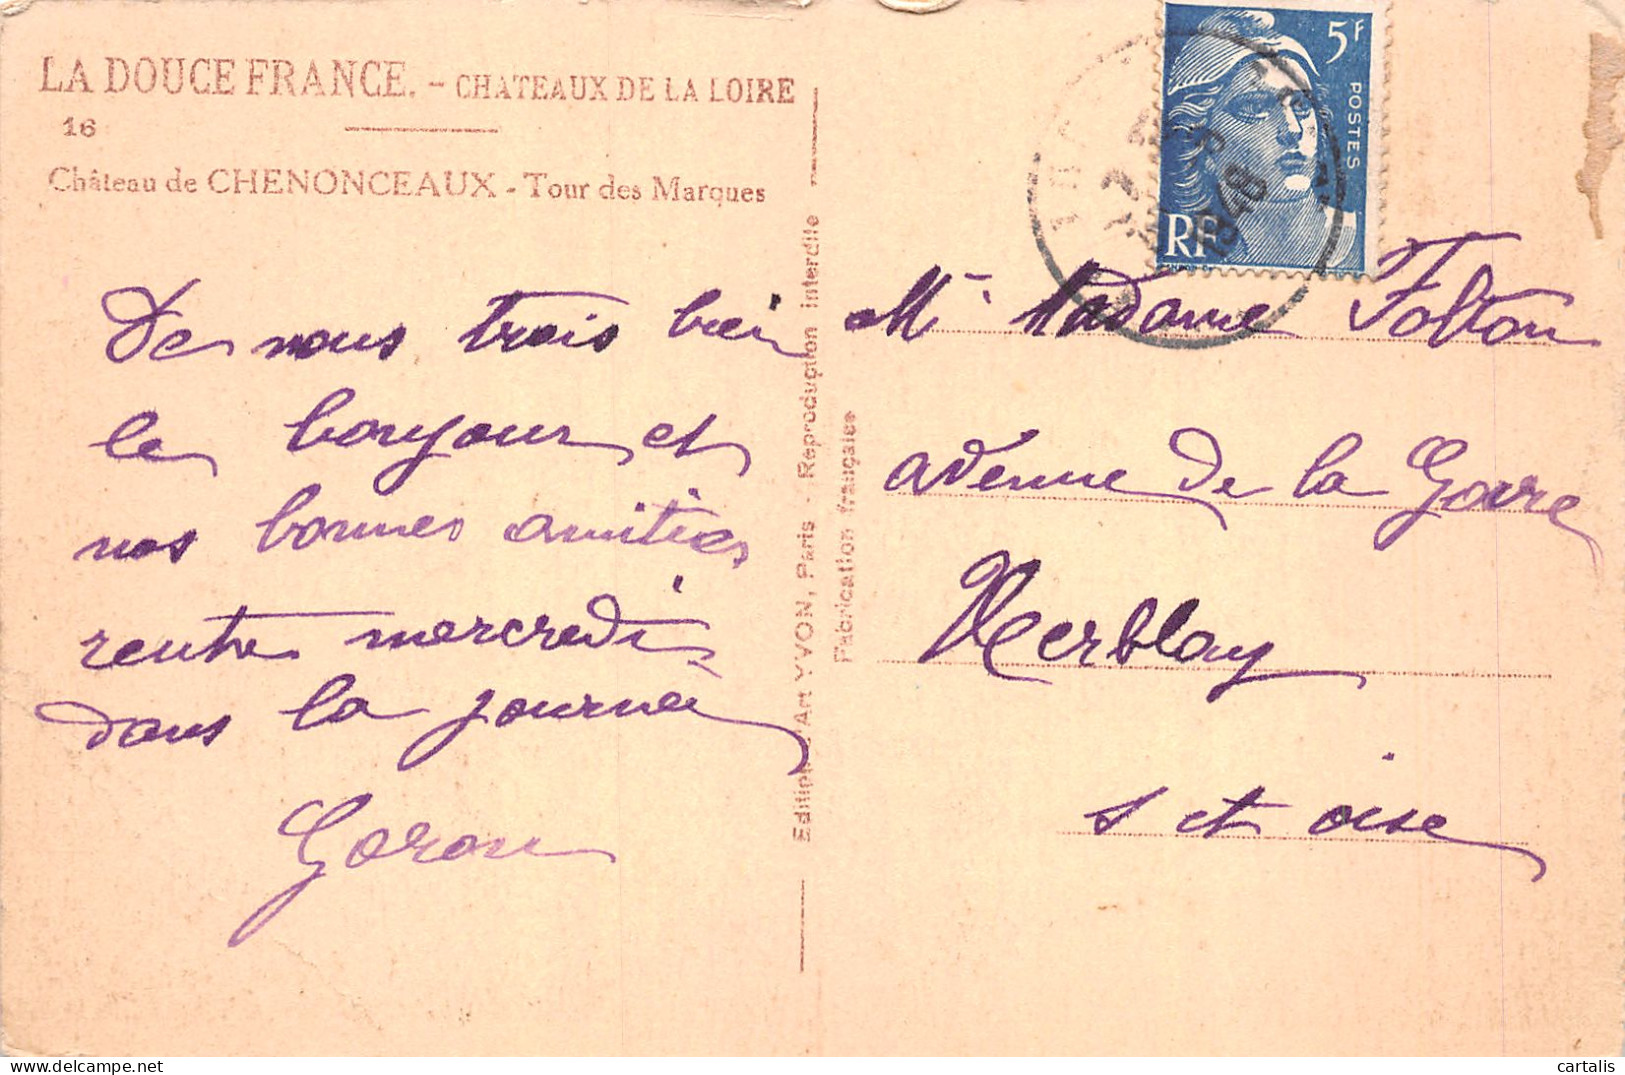 LA DOUCE FRANCE. - CHATEAUX DE LA LOIRE
16
Château de CHENONCEAUX - Tour des Marques
De nous trois bien
le bonjour et
nos bonnes amitiés
rentre mercredi
dans la journée
Goron
Edition d'Art YVON, Paris - Reproduction interdite
Fabrication française
5F
POSTES
RF
1948
Mr Madame
avenue de la Gare
Herblay
S et oise
cartalis